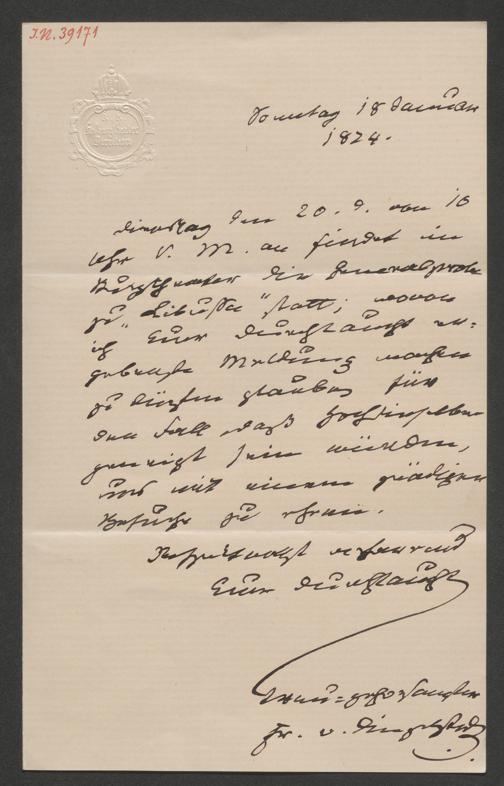 I.N. 39171
Sonntag 18 Januar
1874.
Dienstag den 20. d. von 10
Uhr V. M. an findet im
Burgtheater die Generalprobe
zu „Libussa“ statt; wovon
ich Euer Durchlaucht er-
gebenste Meldung machen
zu dürfen glaube, für
den Fall, daß Hochdieselben
geneigt sein würden,
uns mit einem gnädigen
Besuche zu ehren.
Respectvollst verharrend
Euer Durchlaucht
treu-gehorsamster
Fr. v. Dingelstedt